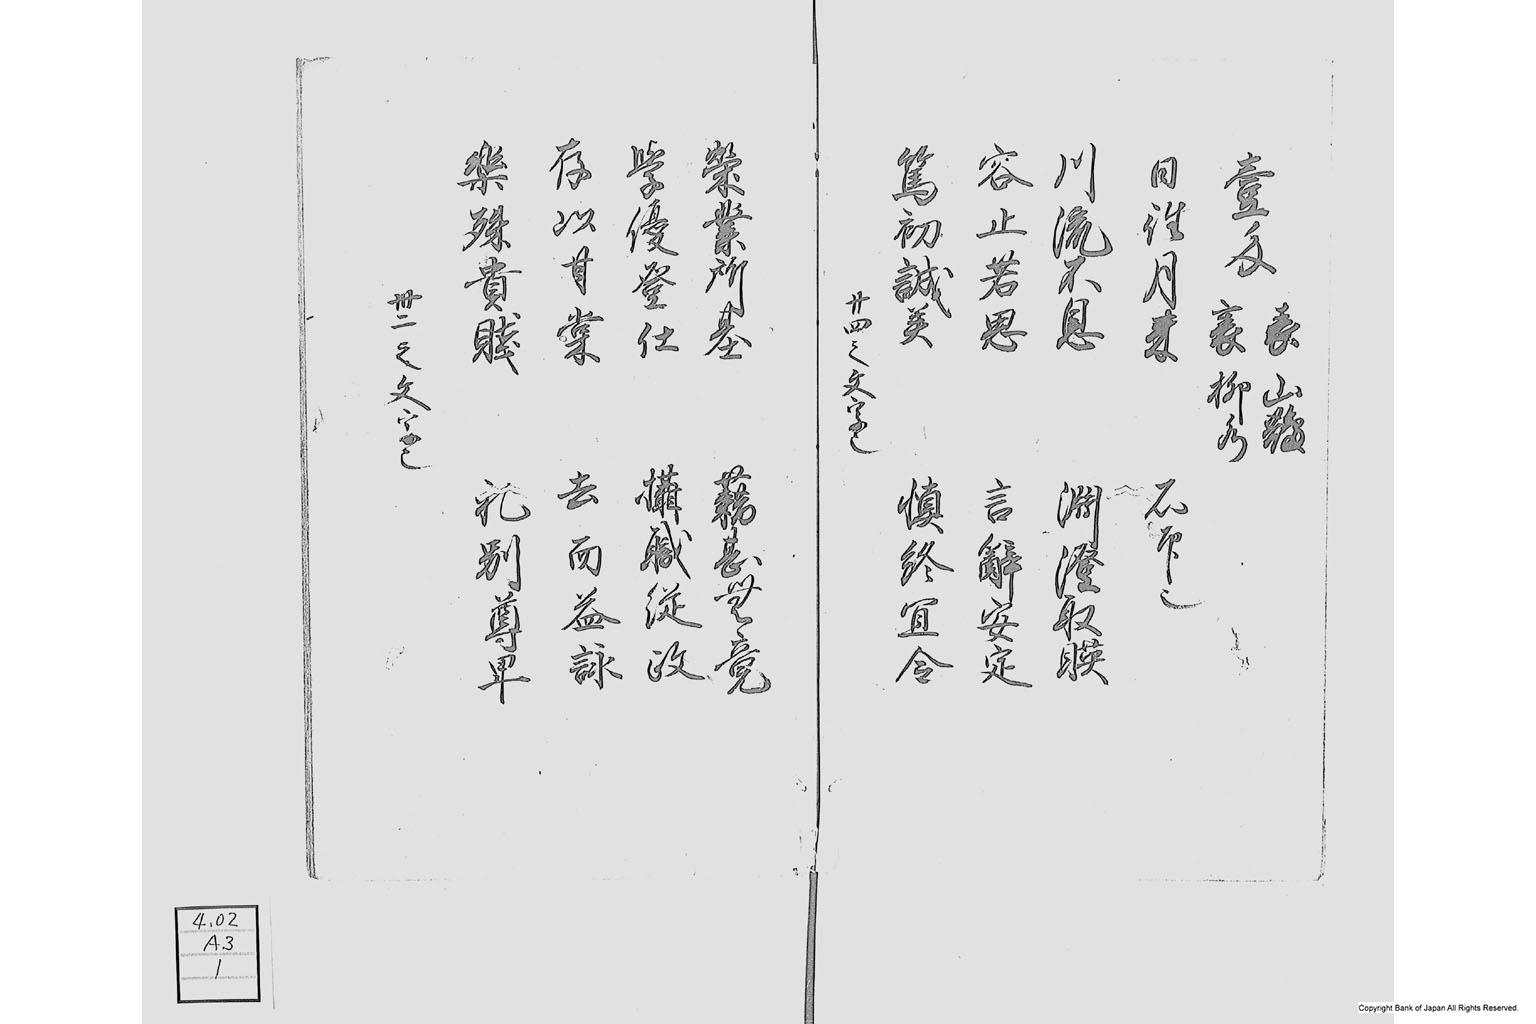 壹匁
表 山駿
裏 柳
日往月来 印
川流不息 淵澄取暎
容止若思 言辭安定
篤初誠美 慎終宜令
廿四之文字也
榮業所基 藉甚無竟
學優登仕 攝職從政
存以甘棠 去而益詠
樂殊貴賤 礼別尊卑
卅二之文字也
4.02
A.3
1
Copyright Bank of Japan All Rights Reserved.